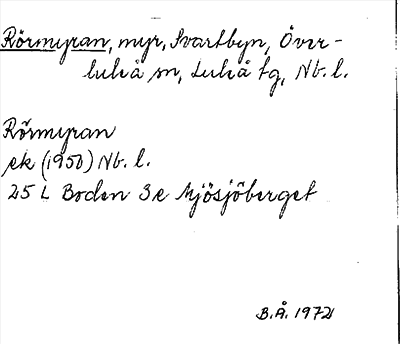 Rörmyran, myr, Svartbyn, Över-
luleå sn, Luleå tg, Nb. l.
Rörmyran
ek (1950) Nb. l.
25 L Boden 3e Mjösjöberget
B.Å. 1972